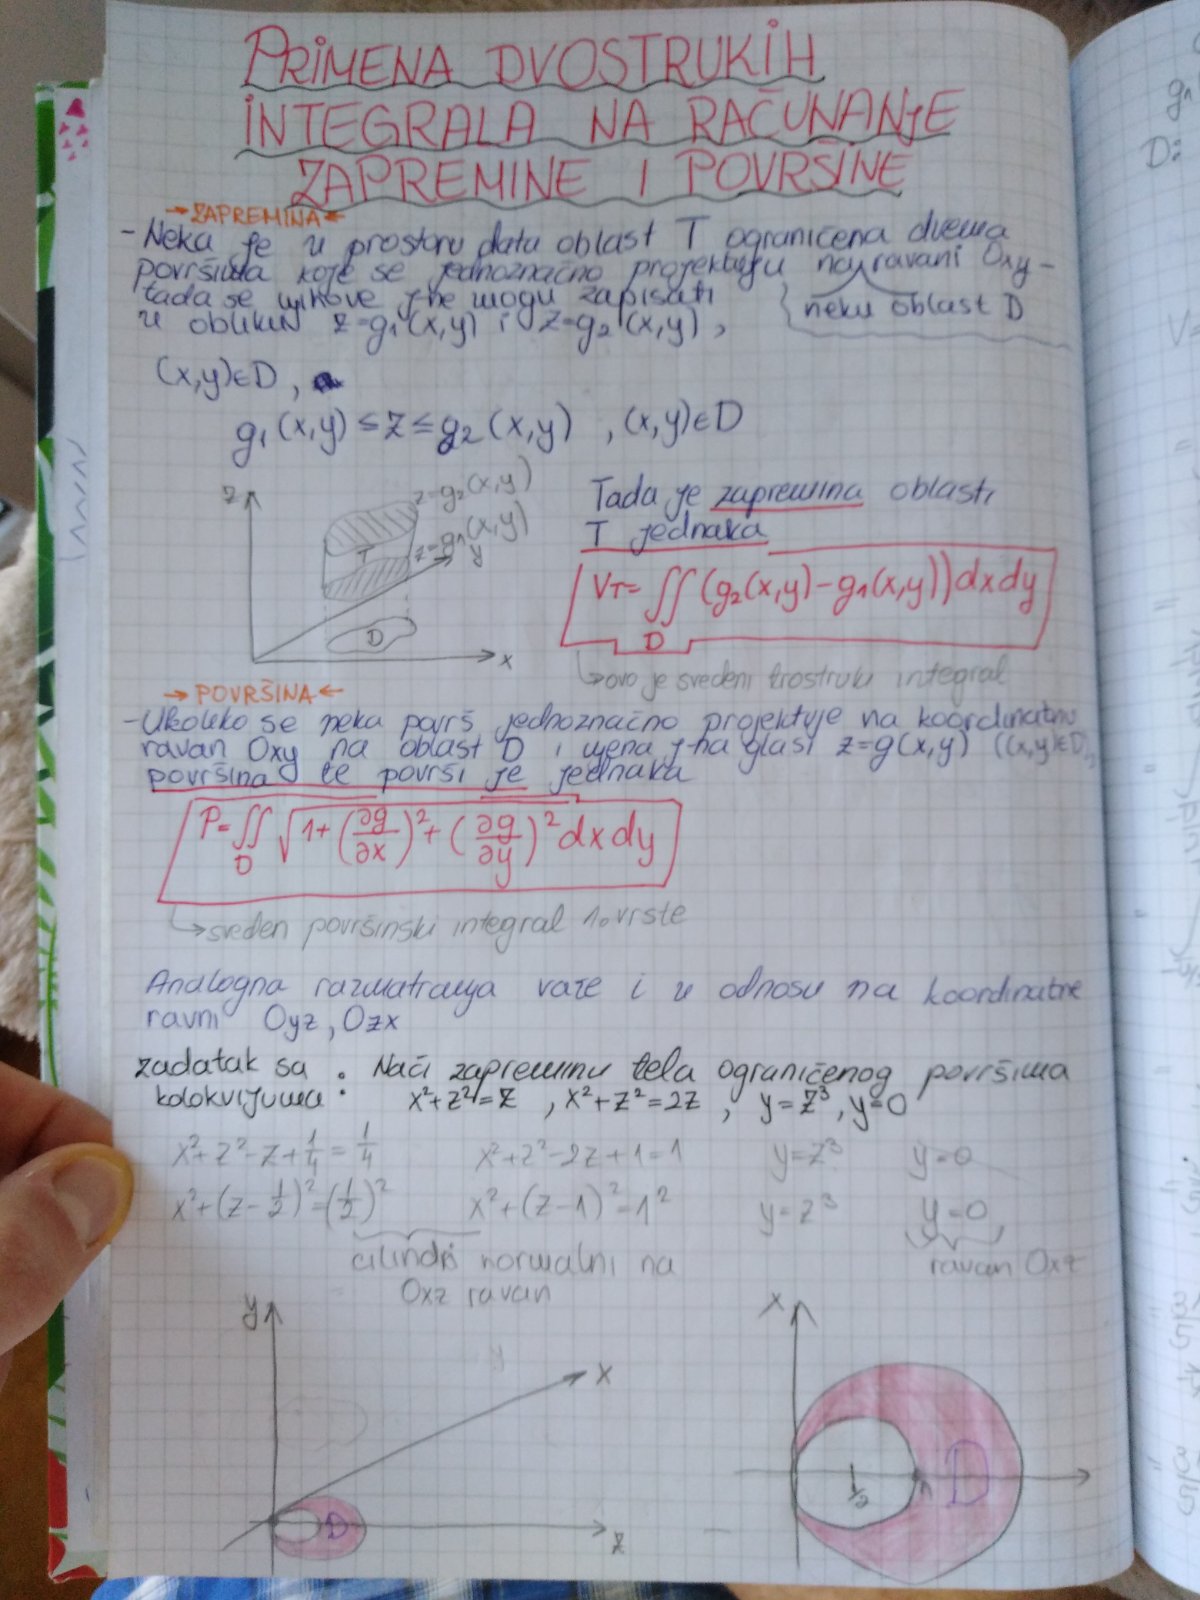 PRIMENA DVOSTRUKIH
INTEGRALA NA RAČUNANJE
ZAPREMINE I POVRŠINE
→ZAPREMINA←
- Neka je u prostoru data oblast T ograničena dvema
površima koje se jednoznačno projektuju na ravani Oxy -
neku oblast D
tada se njihove j-ne mogu zapisati
u obliku z=g₁(x,y) i z=g₂(x,y),
(x,y)∈D,
g₁(x,y)≤z≤g₂(x,y) , (x,y)∈D
z
z=g₂(x,y)
z=g₁(x,y)
y
T
D
x
Tada je zapremina oblasti
T jednaka
V_T=∬_D (g₂(x,y)-g₁(x,y))dxdy
↳ovo je svedeni trostruki integral
→POVRŠINA←
-Ukoliko se neka površ jednoznačno projektuje na koordinatnu
ravan Oxy na oblast D i njena j-na glasi z=g(x,y) ((x,y)∈D),
površina te površi je jednaka
P=∬_D √(1+(∂g/∂x)²+(∂g/∂y)²) dxdy
↳sveden površinski integral 1.vrste
Analogna razmatranja važe i u odnosu na koordinatne
ravni Oyz, Ozx
zadatak sa : Naći zapreminu tela ograničenog površima
kolokvijuma x²+z²=z , x²+z²=2z , y=z³, y=0
x²+z²-z+1/4=1/4 x²+z²-2z+1=1 y=z³ y=0
x²+(z-1/2)²=(1/2)² x²+(z-1)²=1² y=z³ y=0
cilindri normalni na ravan Oxz
Oxz ravan
y
x
D
z
x
1/2
1
D